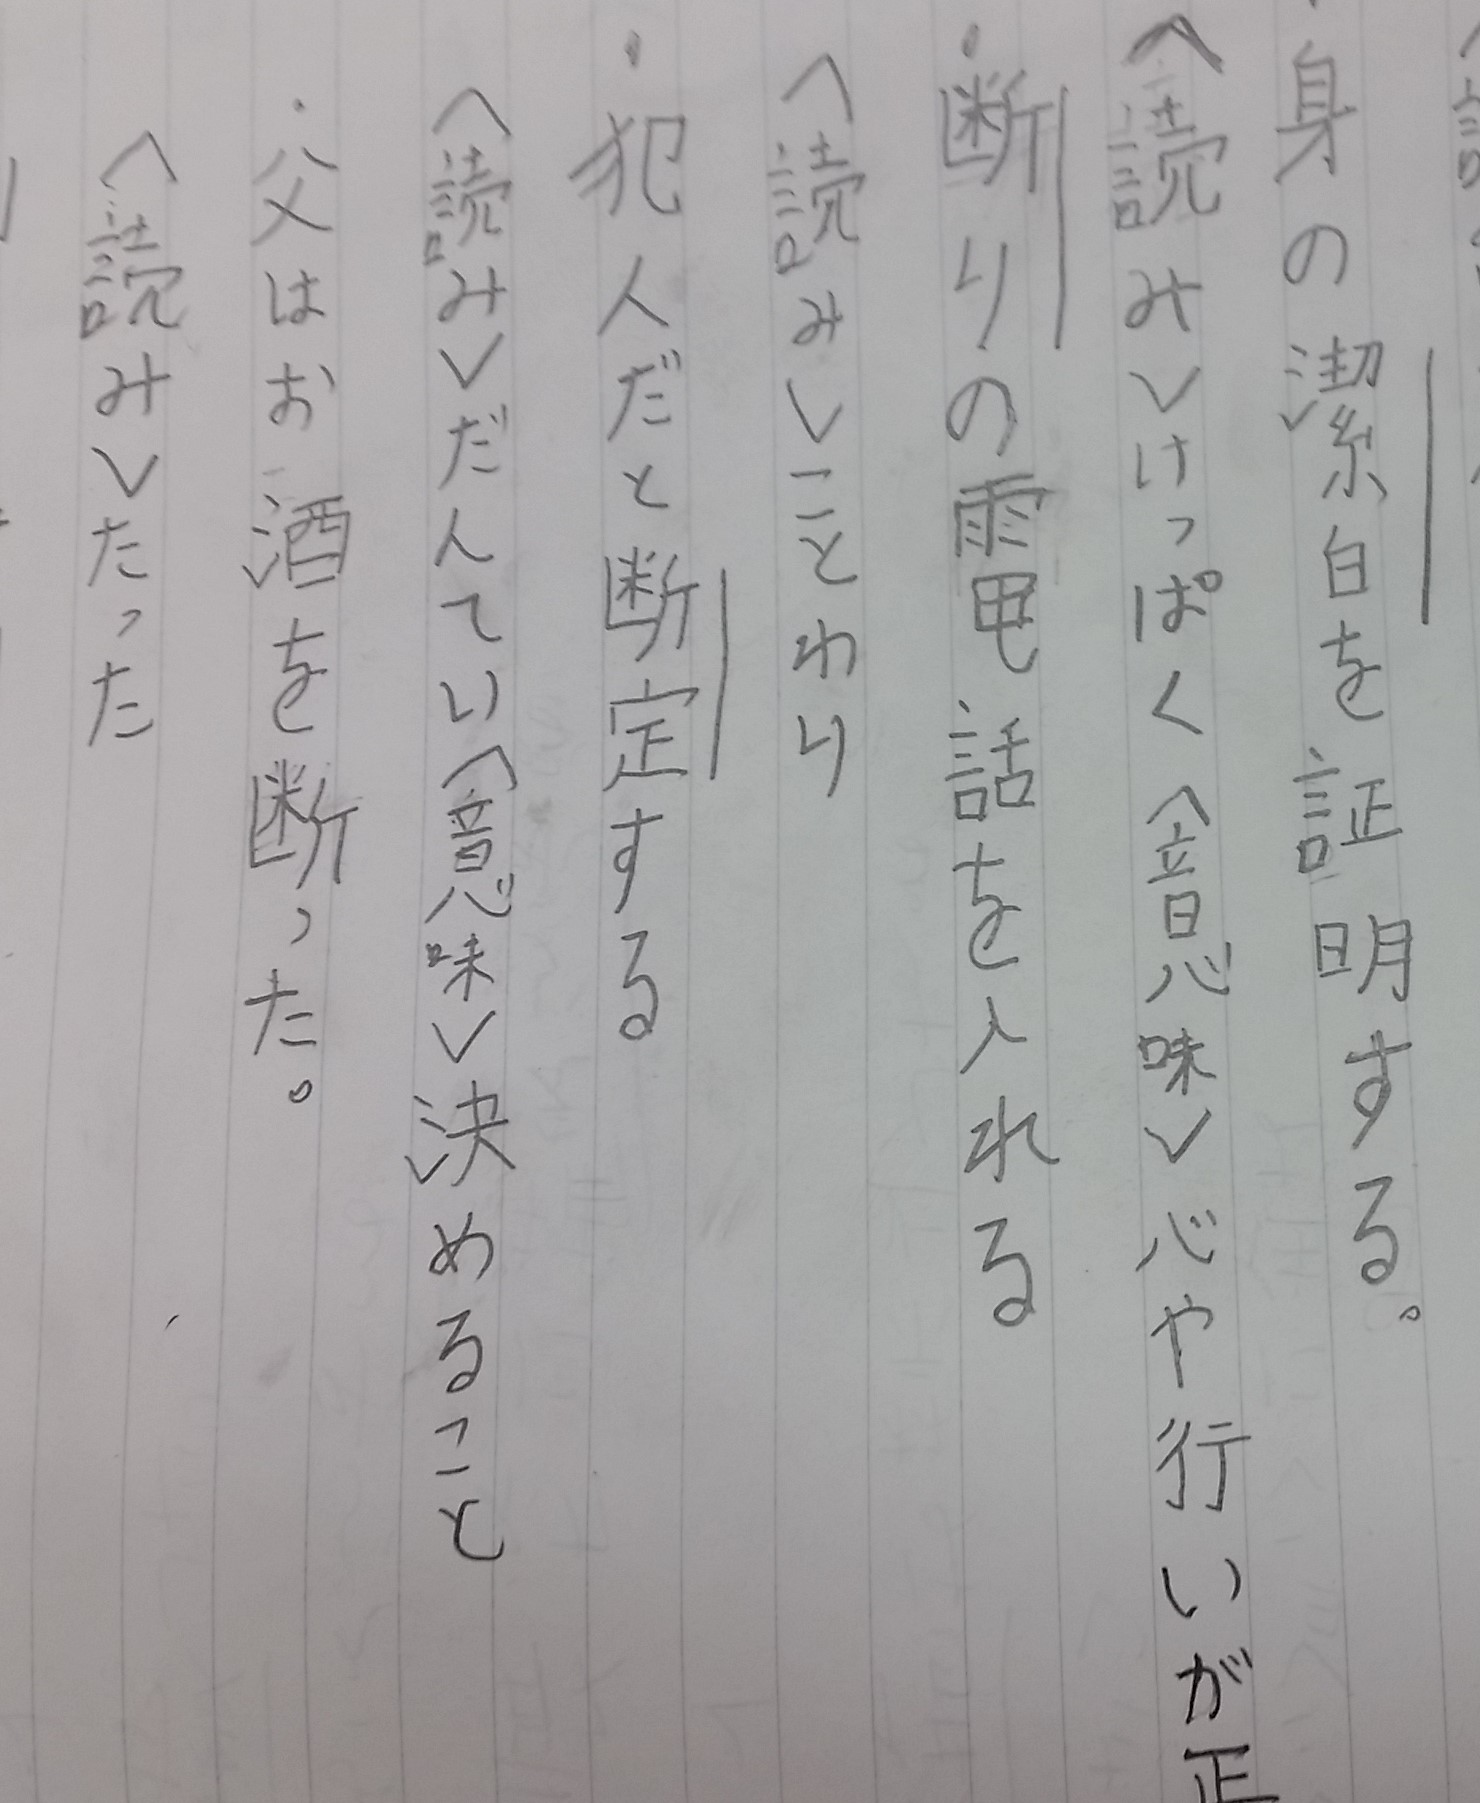 ・身の潔白を証明する。
〈読み〉けっぱく〈意味〉心や行いが正
・断りの電話を入れる
〈読み〉ことわり
・犯人だと断定する
〈読み〉だんてい〈意味〉決めること
・父はお酒を断った。
〈読み〉たった